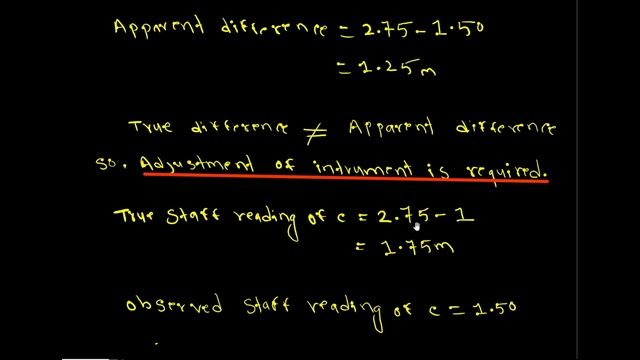 Apparent difference = 2.75 - 1.50
= 1.25m
True difference ≠ Apparent difference
so. Adjustment of instrument is required.
True Staff reading of c = 2.75 - 1
= 1.75m
observed staff reading of c = 1.50